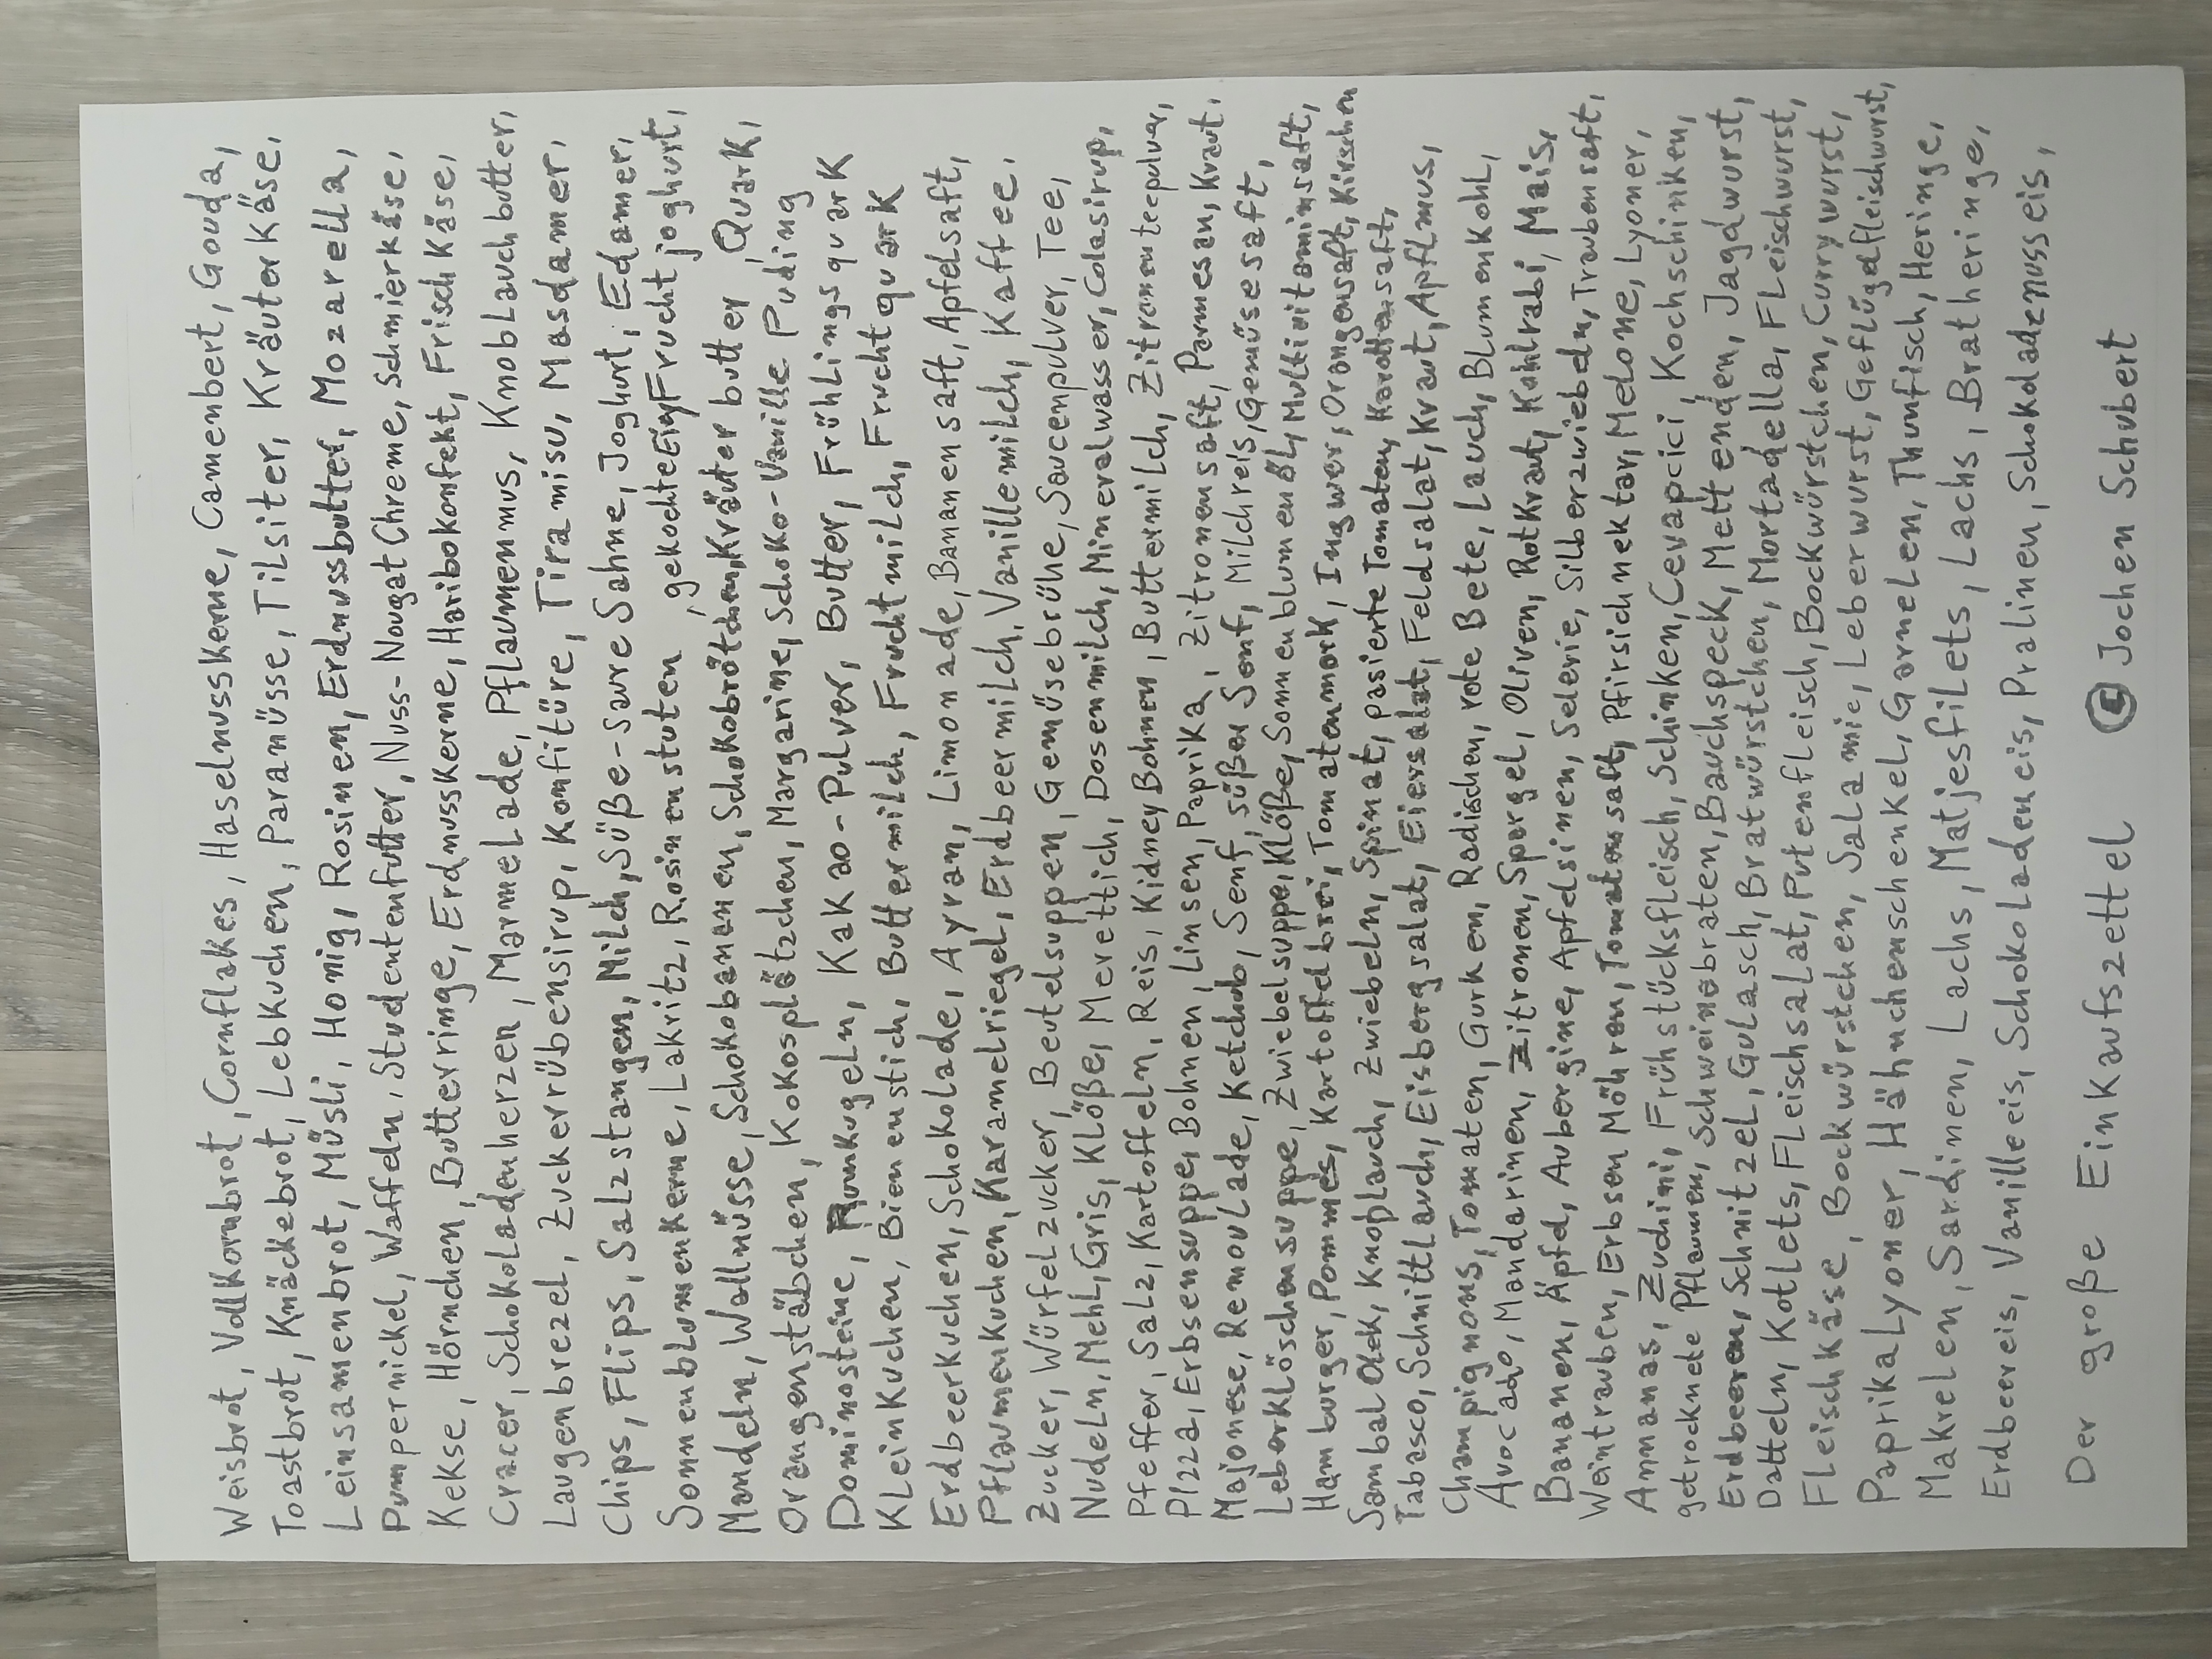 Weisbrot, Vollkornbrot, Cornflakes, Haselnusskerne, Camembert, Gouda,
Toastbrot, Knäckebrot, Lebkuchen, Paranüsse, Tilsiter, Kräuterkäse,
Leinsamenbrot, Müsli, Honig, Rosinen, Erdnussbutter, Mozarella,
Pumpernickel, Waffeln, Studentenfutter, Nuss-Nougat Chreme, Schmierkäse,
Kekse, Hörnchen, Butterringe, Erdnusskerne, Haribokonfekt, Frischkäse,
Cracer, Schokoladenherzen, Marmelade, Pflaumenmus, Knoblauchbutter,
Laugenbrezel, Zuckerrübensirup, Konfitüre, Tiramisu, Masdamer,
Chips, Flips, Salzstangen, Milch, Süße-saure Sahne, Joghurt, Edamer,
Sonnenblumenkerne, Lakritz, Rosinenstuten, gekochte Eier, Fruchtjoghurt,
Mandeln, Wallnüsse, Schokobananen, Schokobrötchen, Kräuterbutter, Quark,
Orangenstäbchen, Kokosplätzchen, Margarine, Schoko-Vanille Puding
Dominosteine, Rumkugeln, Kakao-Pulver, Butter, Frühlingsquark
Kleinkuchen, Bienenstich, Buttermilch, Fruchtmilch, Fruchtquark
Erdbeerkuchen, Schokolade, Ayran, Limonade, Bananensaft, Apfelsaft,
Pflaumenkuchen, Karamelriegel, Erdbeermilch, Vanillemilch, Kaffee,
Zucker, Würfelzucker, Beutelsuppen, Gemüsebrühe, Saucenpulver, Tee,
Nudeln, Mehl, Gris, Klöße, Merettich, Dosenmilch, Mineralwasser, Colasirup,
Pfeffer, Salz, Kartoffeln, Reis, Kidney Bohnen, Buttermilch, Zitronenteepulver,
Pizza, Erbsensuppe, Bohnen, Linsen, Paprika, Zitronensaft, Parmesan, Kraut,
Majonese, Remoulade, Ketchub, Senf, süßer Senf, Milchreis, Gemüsesaft,
Leberklöschensuppe, Zwiebelsuppe, Klöße, Sonnenblumenöl, Multivitaminsaft,
Hamburger, Pommes, Kartoffelbrei, Tomatenmark, Ingwer, Orangensaft, Kirschen
Sambal Olek, Knoplauch, Zwiebeln, Spinat, pasierte Tomaten, Karottensaft,
Tabasco, Schnittlauch, Eisbergsalat, Eiersalat, Feldsalat, Kraut, Apflmus,
Champignons, Tomaten, Gurken, Radischen, rote Bete, Lauch, Blumenkohl,
Avocado, Mandarinen, Zitronen, Spargel, Oliven, Rotkraut, Kohlrabi, Mais,
Bananen, Äpfel, Aubergine, Apfelsinen, Selerie, Silberzwiebeln, Traubensaft,
Weintrauben, Erbsen Möhren, Tomatensaft, Pfirsichnektar, Melone, Lyoner,
Annanas, Zuchini, Frühstücksfleisch, Schinken, Cevapcici, Kochschinken,
getrocknete Pflaumen, Schweinebraten, Bauchspeck, Mettenden, Jagdwurst,
Erdbeeren, Schnitzel, Gulasch, Bratwürstchen, Mortadella, Fleischwurst,
Datteln, Kotlets, Fleischsalat, Putenfleisch, Bockwürstchen, Currywurst,
Fleischkäse, Bockwürstchen, Salamie, Leberwurst, Geflügelfleischwurst,
Paprika Lyoner, Hähnchenschenkel, Garnelen, Thunfisch, Heringe,
Makrelen, Sardinen, Lachs, Matjesfilets, Lachs, Bratheringe,
Erdbeereis, Vanilleeis, Schokoladeneis, Pralinen, Schokoladenusseis,
Der große Einkaufszettel © Jochen Schubert